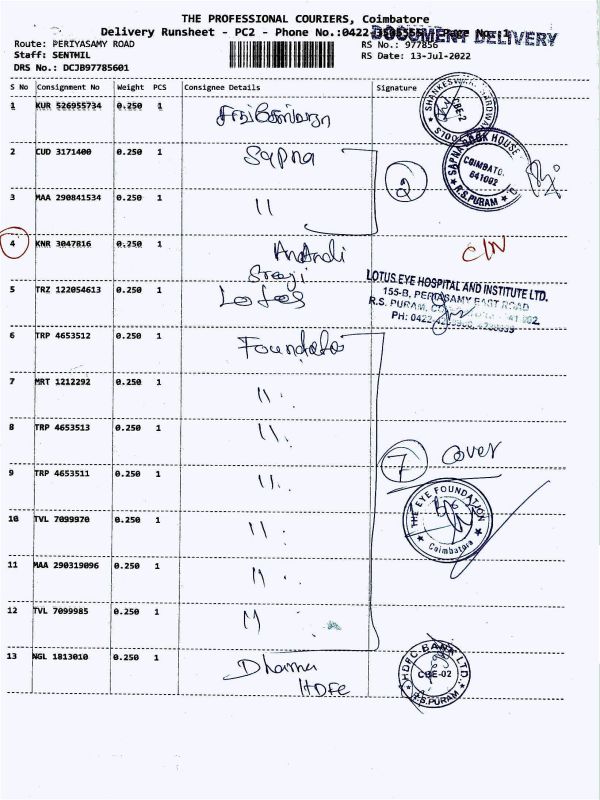 THE PROFESSIONAL COURIERS, Coimbatore
Delivery Runsheet - PC2 - Phone No.:0422
DOCUMENT DELIVERY
Route: PERIYASAMY ROAD
RS No.: 977856
Staff: SENTHIL
RS Date: 13-Jul-2022
DRS No.: DCJB97785601
S No Consignment No Weight PCS Consignee Details Signature
1 KUR 526955734 0.250 1
SHANKESWAR HARDWARE TOOLS CBE-2
2 CUD 3171400 0.250 1 Sapna
2
SAPNA BOOK HOUSE COIMBATO. 641002 R.S.PURAM
3 MAA 290841534 0.250 1 11
4 KNR 3047816 0.250 1
C/N
5 TRZ 122054613 0.250 1 Lotus
LOTUS EYE HOSPITAL AND INSTITUTE LTD.
155-B, PERIASAMY EAST ROAD
R.S. PURAM,
PH: 0422
6 TRP 4653512 0.250 1
7 MRT 1212292 0.250 1 11
8 TRP 4653513 0.250 1 11
9 TRP 4653511 0.250 1 11
7 cover
10 TVL 7099970 0.250 1 11
THE EYE FOUNDATION Coimbatore
11 MAA 290319096 0.250 1 11
12 TVL 7099985 0.250 1 11
13 NGL 1813010 0.250 1 Dhanna
HDFC
HDFC BANK LTD. CBE-02 R.S.PURAM